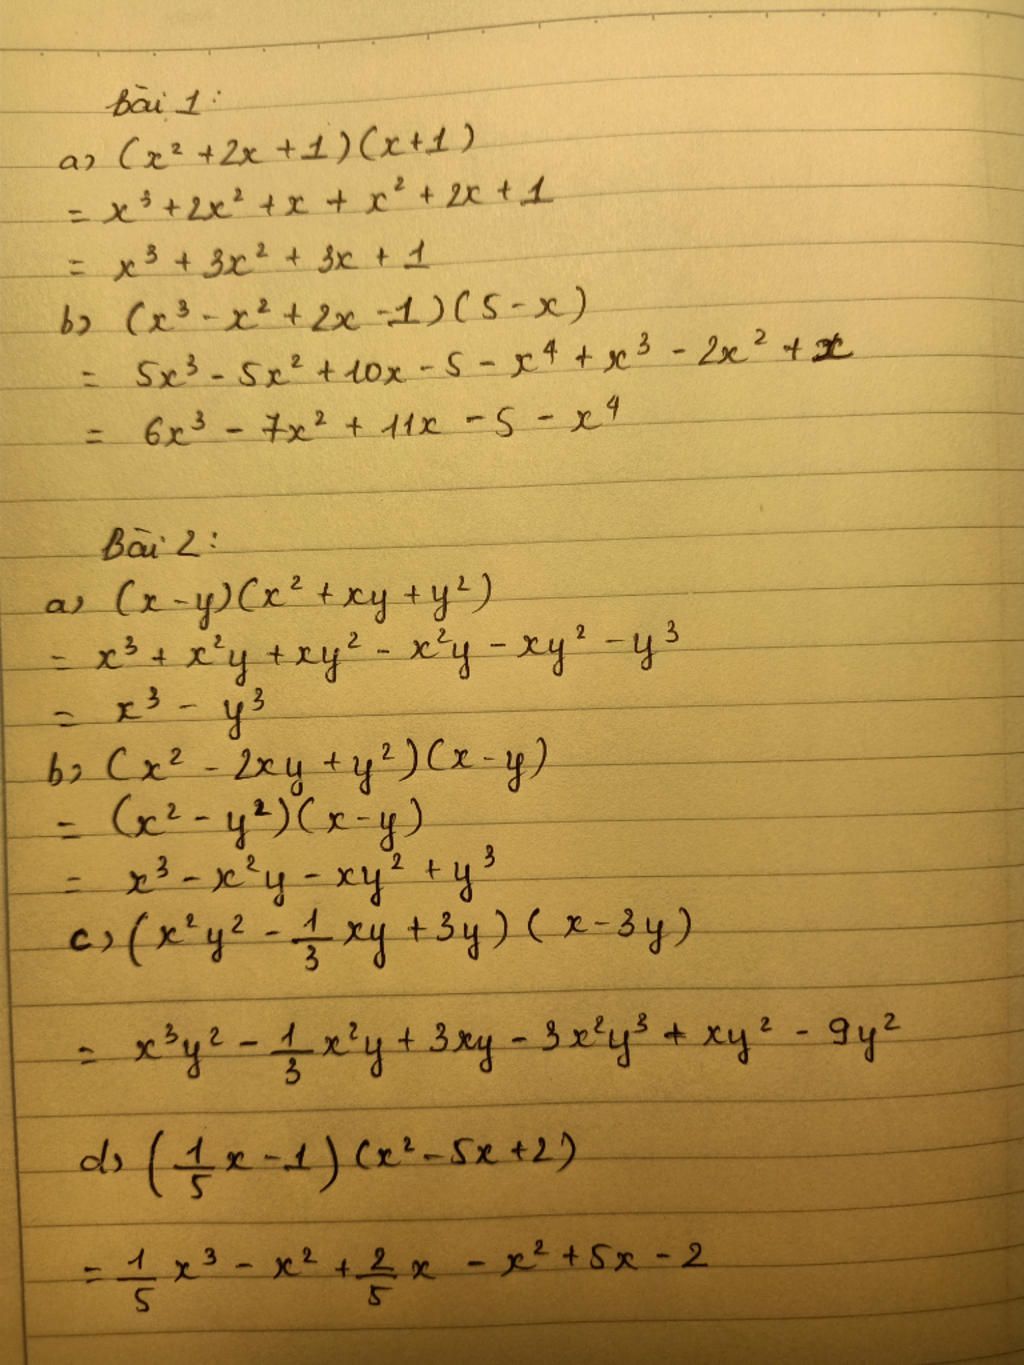 Bài 1:
a) (x² + 2x + 1)(x + 1)
= x³ + 2x² + x + x² + 2x + 1
= x³ + 3x² + 3x + 1
b) (x³ - x² + 2x - 1)(5 - x)
= 5x³ - 5x² + 10x - 5 - x⁴ + x³ - 2x² + x
= 6x³ - 7x² + 11x - 5 - x⁴
Bài 2:
a) (x - y)(x² + xy + y²)
= x³ + x²y + xy² - x²y - xy² - y³
= x³ - y³
b) (x² - 2xy + y²)(x - y)
= (x² - y²)(x - y)
= x³ - x²y - xy² + y³
c) (x²y² - 1/3 xy + 3y)(x - 3y)
= x³y² - 1/3 x²y + 3xy - 3x²y³ + xy² - 9y²
d) (1/5 x - 1)(x² - 5x + 2)
= 1/5 x³ - x² + 2/5 x - x² + 5x - 2